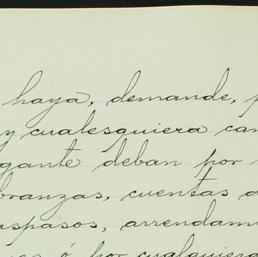 haya, demande, p
y cualesquiera can
gante deban por
branzas, cuentas d
aspasos, arrendam
ó por cualquiera